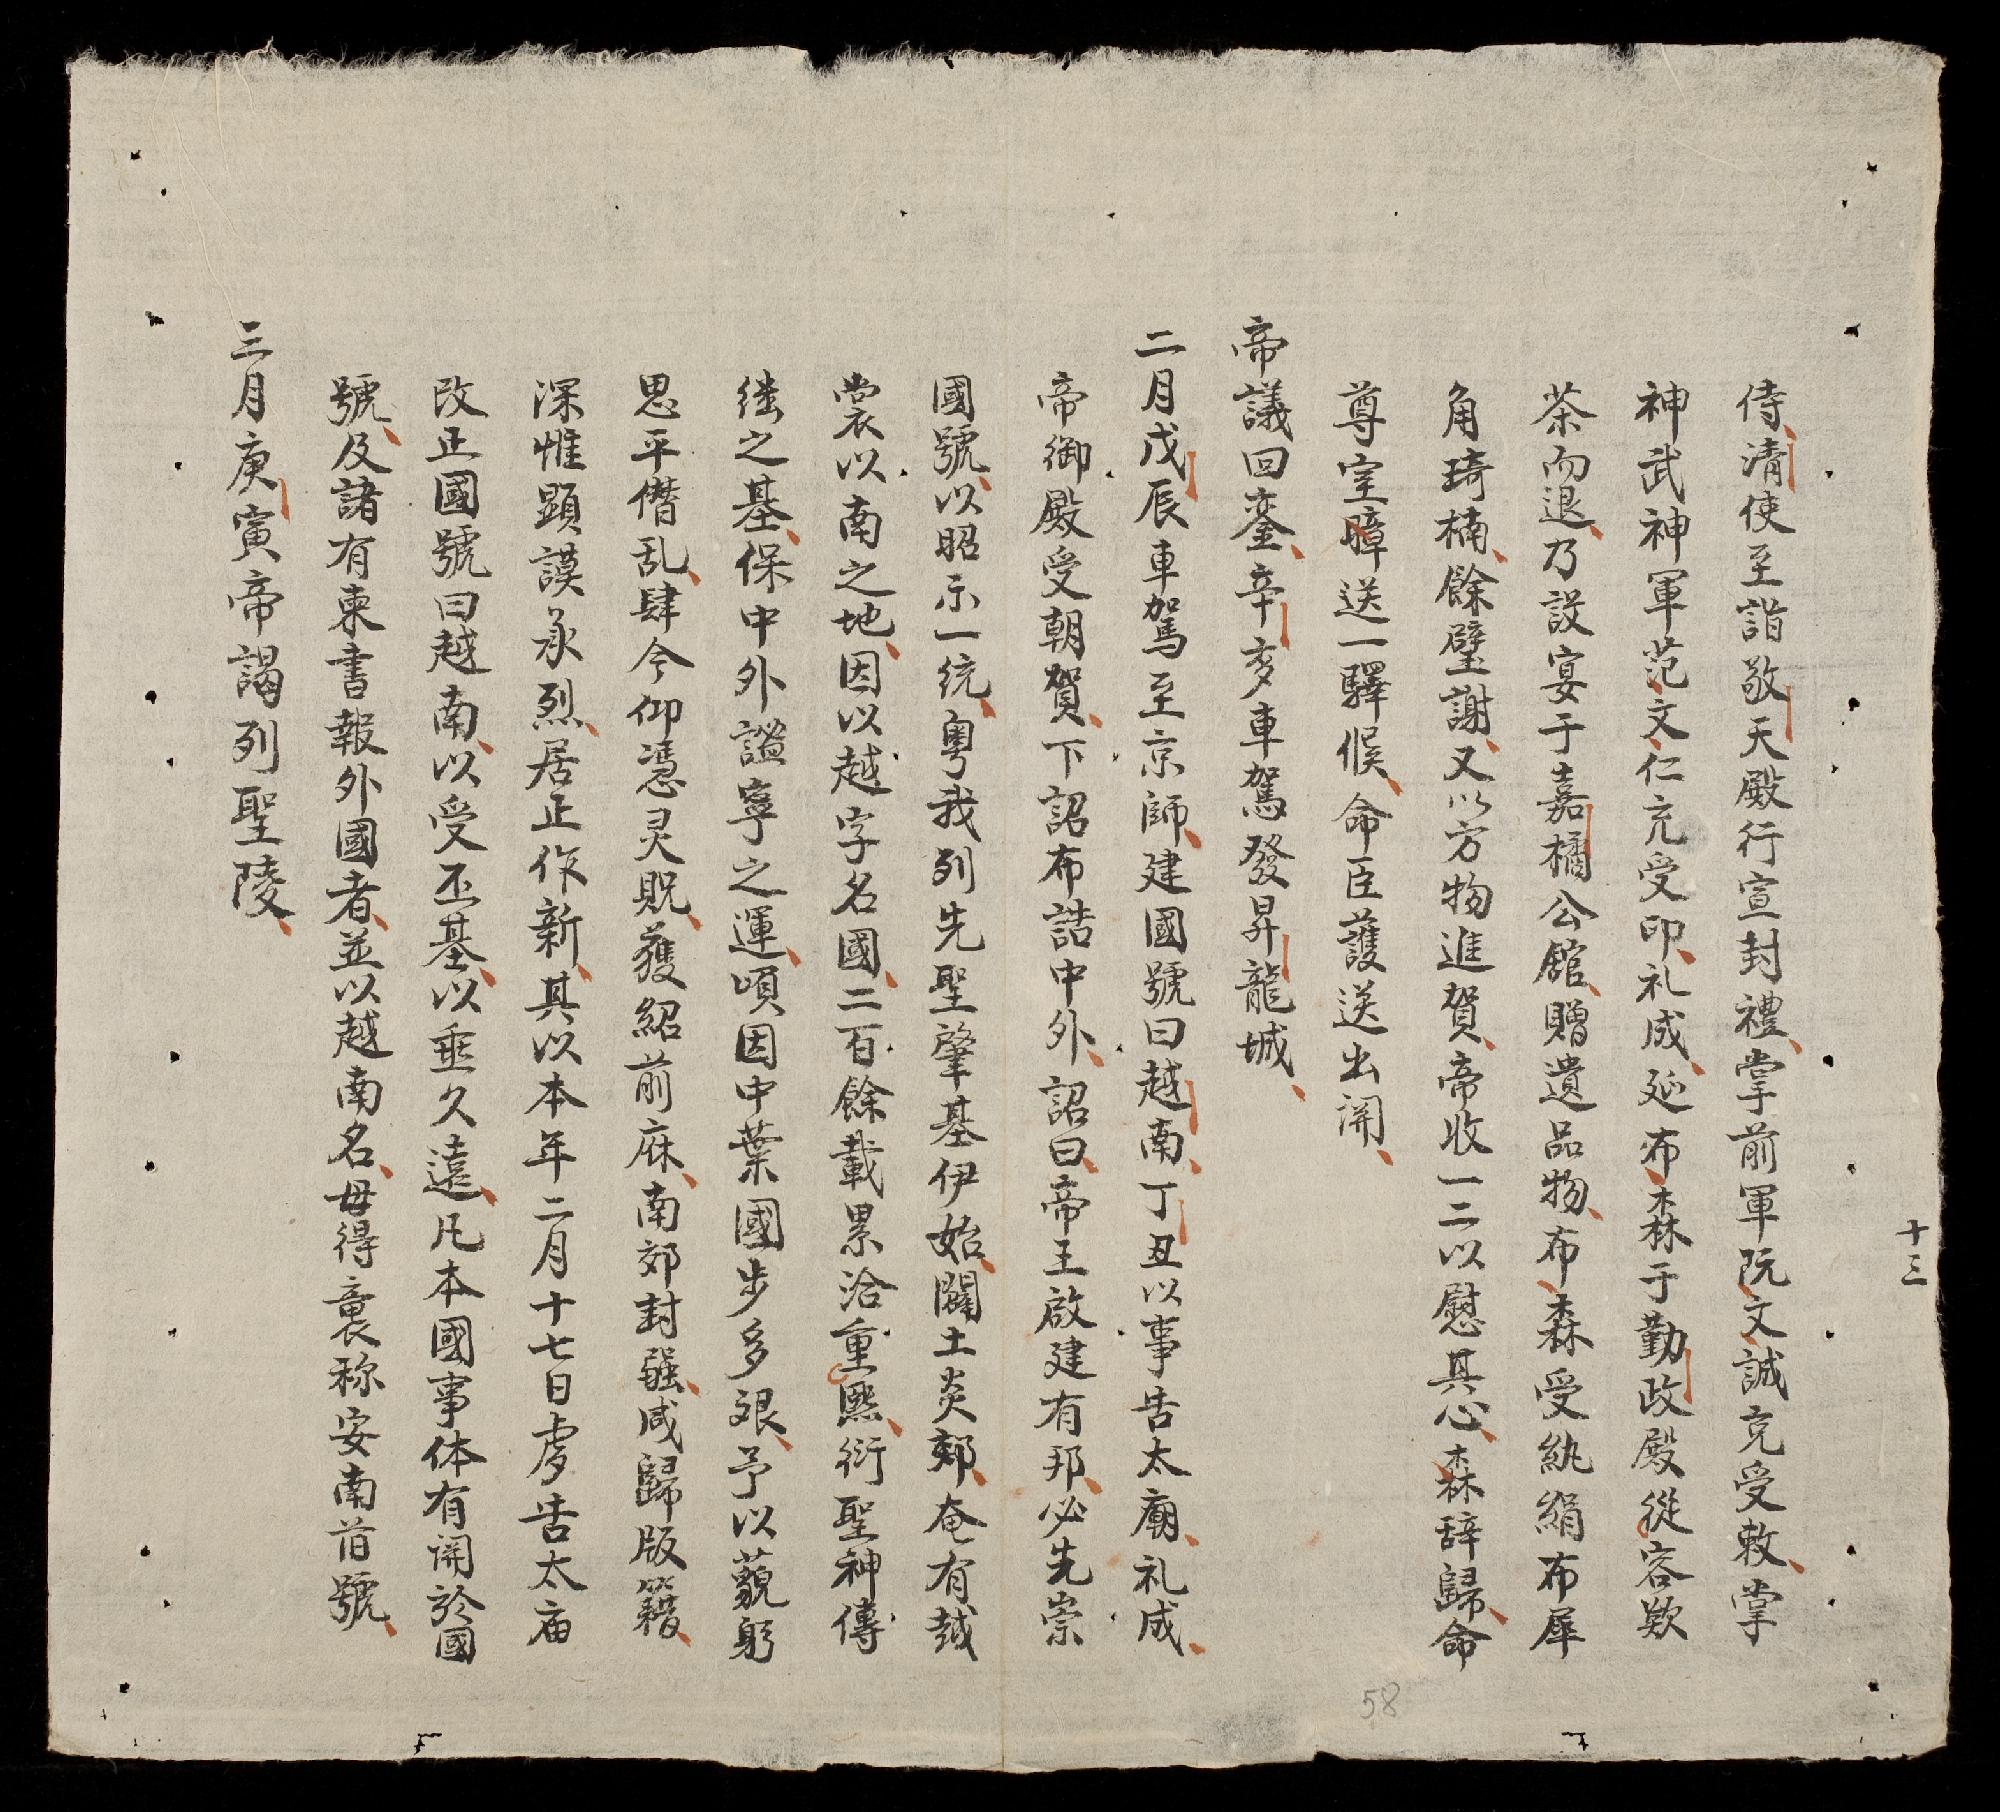 十三
侍清使至詣敬天殿行宣封禮掌前軍阮文誠充受敕掌
神武神軍范文仁充受印礼成延布森于勤政殿從容欵
茶而退乃設宴于嘉橘公舘贈遺品物布森受紈絹布犀
角琦楠餘璧謝又以方物進賀帝收一二以慰其心森辞歸命
尊室暲送一驛候命臣護送出関
帝議回鑾辛亥車駕發昇龍城
二月戊辰車駕至京師建國號曰越南丁丑以事告太廟礼成
帝御殿受朝賀下詔布誥中外詔曰帝王啟建有邦必先崇
國號以昭示一統粤我列先聖肇基伊始闢土炎郊奄有越
裳以南之地因以越字名國二百餘載累洽重熙衍聖神傳
継之基保中外謐寧之運頃因中葉國步多艱予以藐躬
思平僭乱肆今仰憑灵貺獲紹前庥南郊封疆咸歸版籍
深惟顕謨承烈居正作新其以本年二月十七日虔告太庙
改正國號曰越南以受丕基以垂久遠凡本國事体有関於國
號及諸有柬書報外國者並以越南名毋得襲称安南旧號
三月庚寅帝謁列聖陵
58